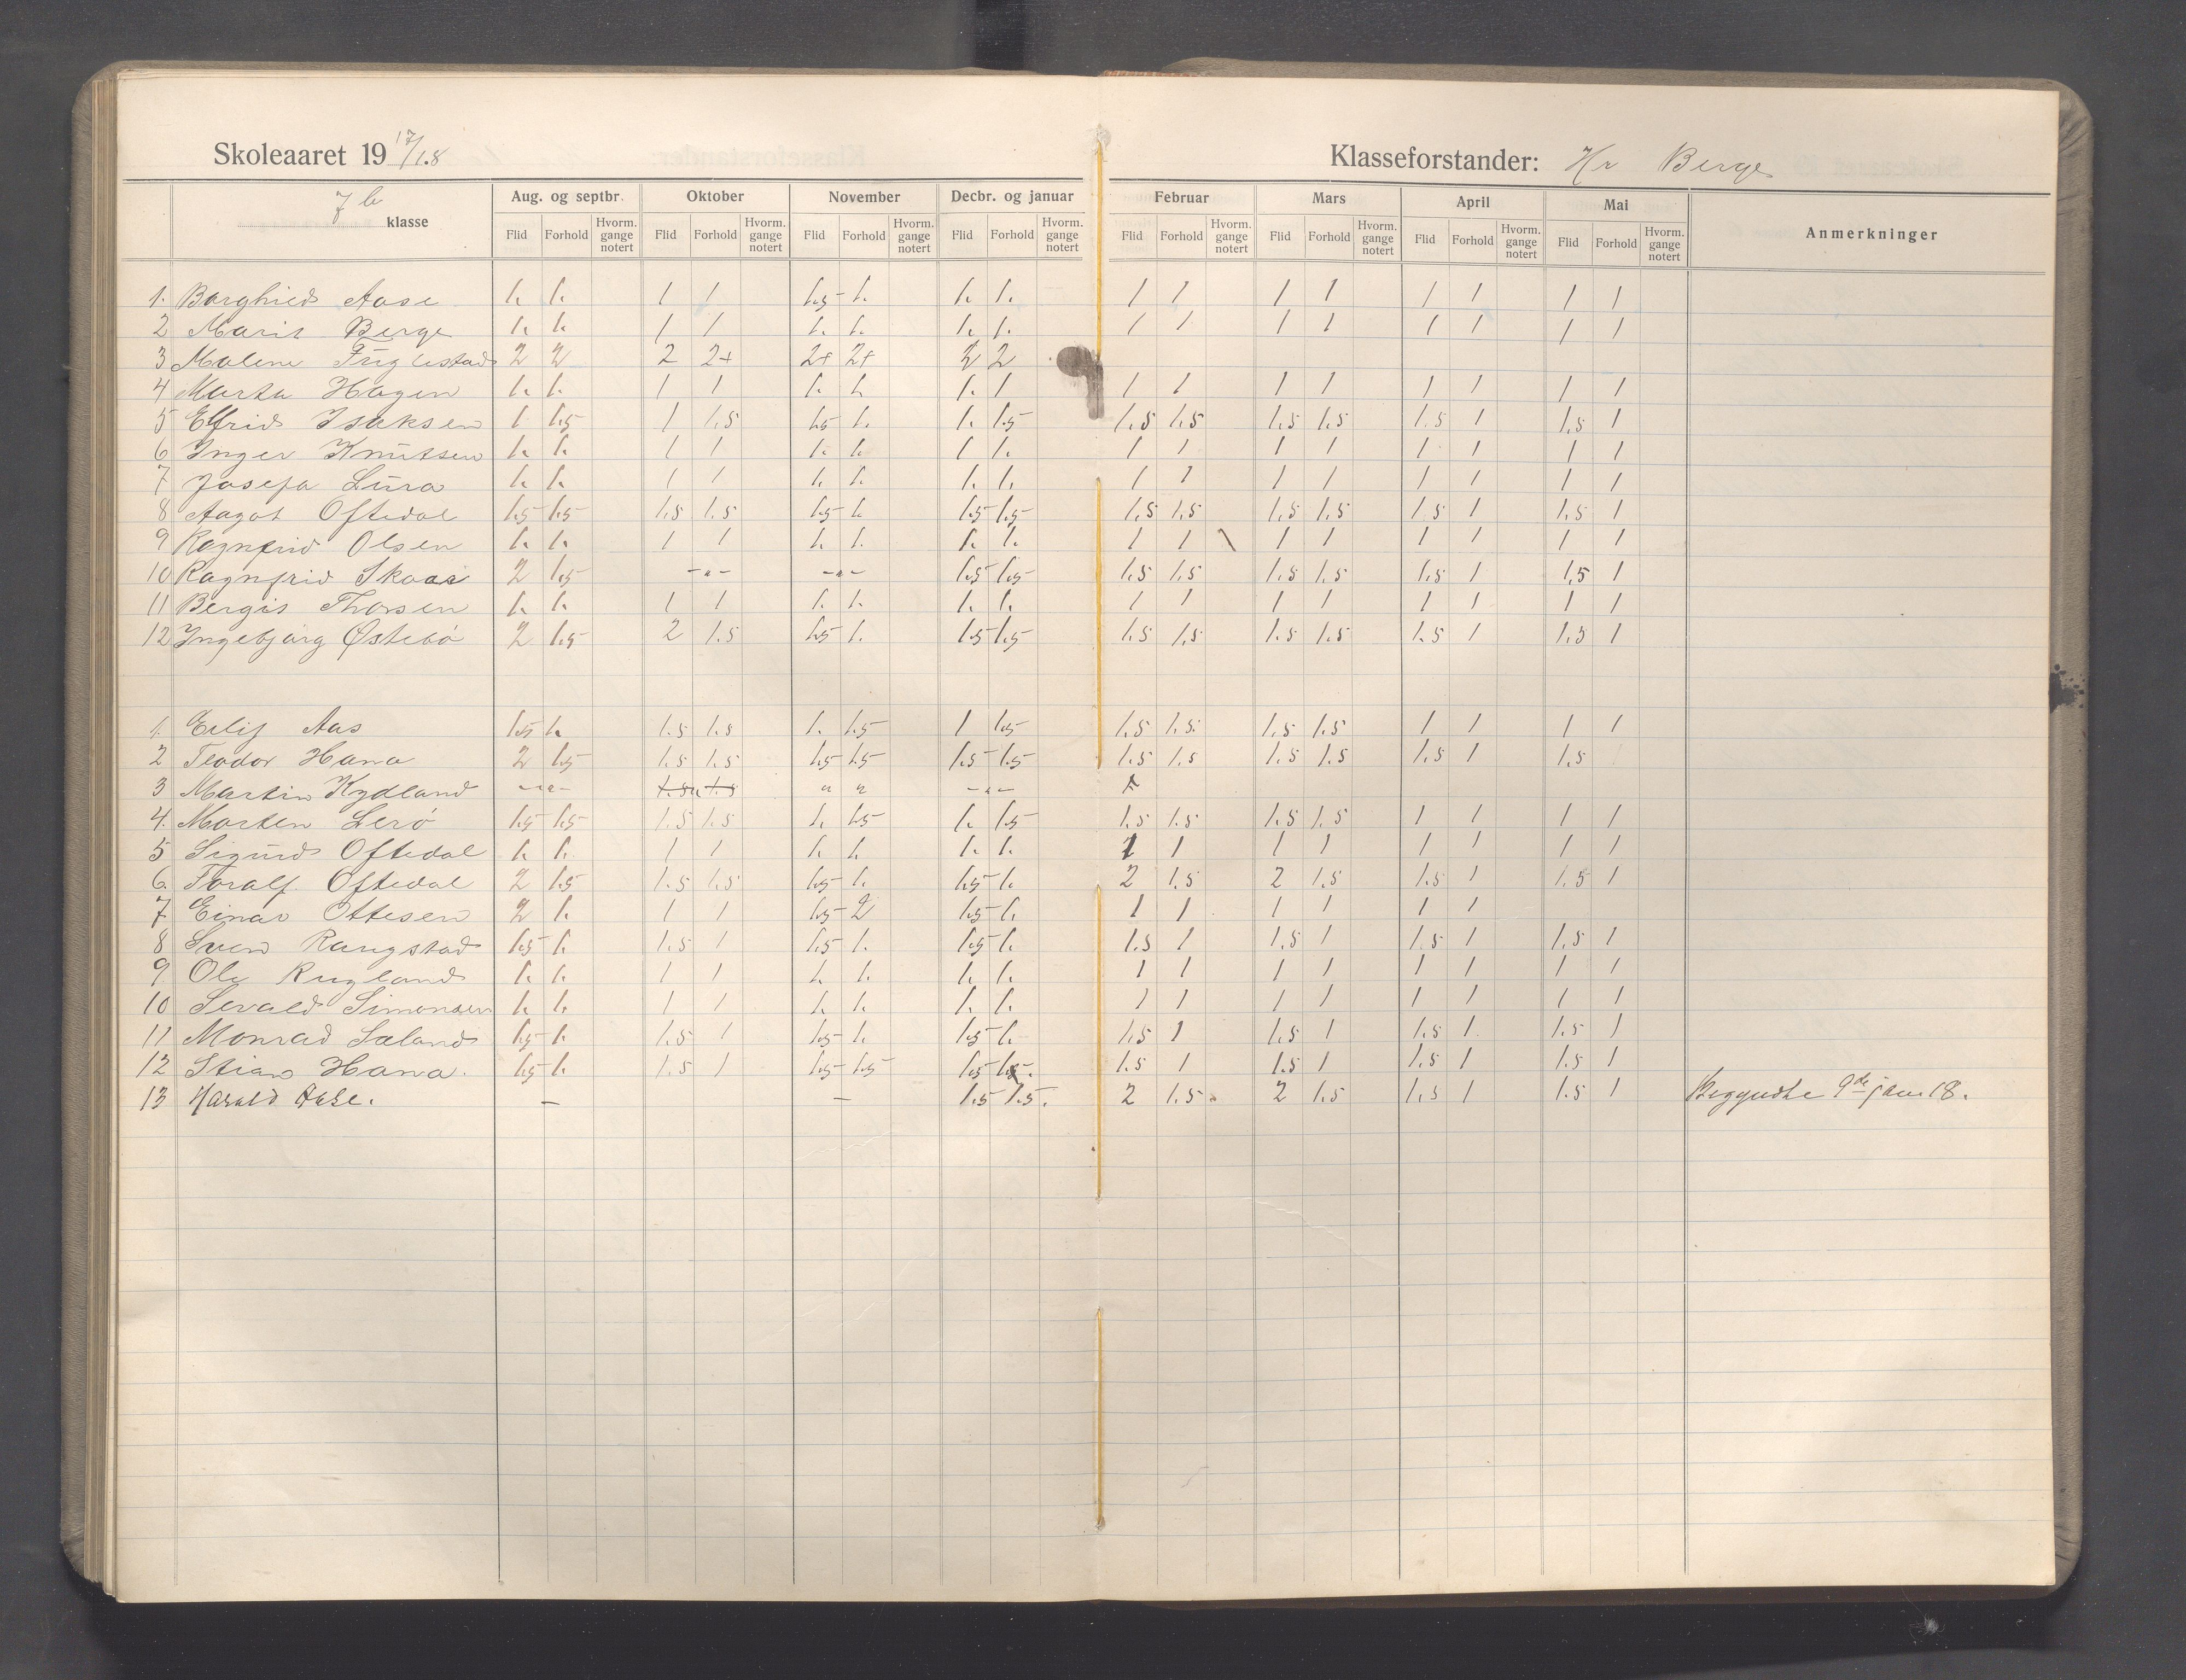 Skoleaaret 19 17/18 Klasseforstander: Hr Berge
7b klasse Aug. og septbr. Oktober November Decbr. og januar Februar Mars April Mai Anmerkninger
Flid Forhold Hvorm. gange notert Flid Forhold Hvorm. gange notert Flid Forhold Hvorm. gange notert Flid Forhold Hvorm. gange notert Flid Forhold Hvorm. gange notert Flid Forhold Hvorm. gange notert Flid Forhold Hvorm. gange notert Flid Forhold Hvorm. gange notert
1. Borghild Aase 1. 1. 1 1 1.5 1. 1. 1. 1 1 1 1 1 1 1 1
2 Marit Berge 1. 1. 1 1 1. 1. 1. 1. 1 1 1 1 1 1 1 1
3 Malene Fuglestad 2 2 2 2+ 2+ 2+ 2 2
4 Marta Hagen 1. 1. 1 1 1. 1. 1. 1 1 1 1 1 1 1 1 1
5 Elfrid Isaksen 1 1.5 1 1.5 1.5 1. 1. 1.5 1,5 1,5 1,5 1,5 1,5 1 1,5 1
6 Inger Knutsen 1. 1. 1 1 1. 1. 1 1. 1 1 1 1 1 1 1 1
7 Josefa Lura 1. 1. 1 1 1. 1. 1. 1. 1 1 1 1 1 1 1 1
8 Aagot Oftedal 1.5 1.5 1.5 1.5 1.5 1. 1.5 1.5 1,5 1,5 1,5 1,5 1,5 1 1,5 1
9 Ragnfrid Olsen 1. 1. 1 1 1. 1. 1. 1. 1 1 \ 1 1 1 1 1 1
10 Ragnfrid Skaar 2 1.5 -"- -"- 1.5 1.5 1,5 1,5 1,5 1,5 1,5 1 1,5 1
11 Bergit Thorsen 1. 1. 1 1 1. 1. 1. 1. 1 1 1 1 1 1 1 1
12 Ingebjørg Østebø 2 1.5 2 1.5 1.5 1. 1.5 1.5 1.5 1,5 1.5 1.5 1.5 1 1,5 1
1. Eilif Aas 1.5 1. 1.5 1.5 1. 1.5 1 1.5 1.5 1.5 1.5 1.5 1 1 1 1
2 Teodor Hana 2 1.5 1.5 1.5 1.5 1.5 1.5 1.5 1.5 1.5 1.5 1.5 1.5 1 1.5
3 Martin Kydland -"- 1.5 " 1.5 " " -"-
4. Morten Lerø 1.5 1.5 1.5 1.5 1. 1.5 1. 1.5 1.5 1.5 1.5 1.5 1 1 1 1
5 Sigurd Oftedal 1. 1. 1 1 1. 1. 1. 1. 1 1 1 1 1 1 1 1
6. Toralf Oftedal 2 1.5 1.5 1.5 1.5 1. 1.5 1. 2 1.5 2 1.5 1.5 1 1.5 1
7 Einar Ottesen 2 1. 1 1 1.5 2 1.5 1. 1 1 1 1 1 1
8 Sven Rangstad 1.5 1. 1.5 1 1.5 1. 1.5 1. 1.5 1 1.5 1 1.5 1 1.5 1
9 Ole Rugland 1. 1. 1 1 1. 1. 1. 1. 1 1 1 1 1 1 1 1
10 Sevald Simonsen 1. 1. 1 1 1. 1. 1. 1. 1 1 1 1 1 1 1 1
11 Monrad Sæland 1.5 1. 1.5 1 1.5 1. 1.5 1. 1.5 1 1.5 1 1.5 1 1.5 1
12 Stian Hana. 1.5 1. 1.5 1 1.5 1.5 1.5 1.5. 1.5 1 1.5 1 1.5 1 1.5 1
13 Harald Aase. - - 1.5 1.5. 2 1.5 2 1.5 1.5 1 1.5 1 Begyndte 9de jan. 18.